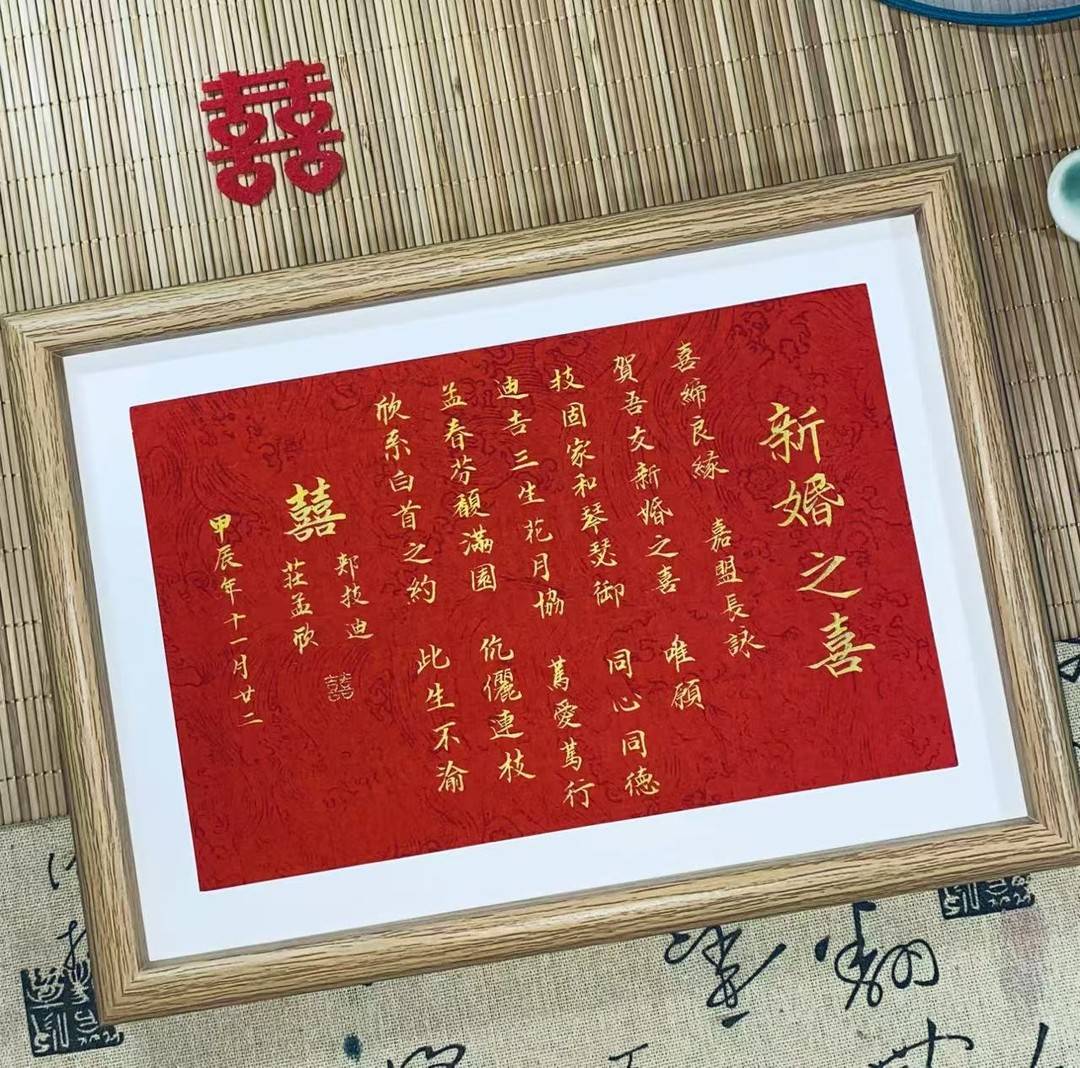 囍
新婚之喜
喜締良緣 嘉盟長詠
賀吾友新婚之喜 唯願
技固家和琴瑟御 同心同德
迪吉三生花月協 篤愛篤行
孟春芬馥滿園 伉儷連枝
欣系白首之約 此生不渝
郭技迪
囍 莊孟欣
囍
甲辰年十一月廿二